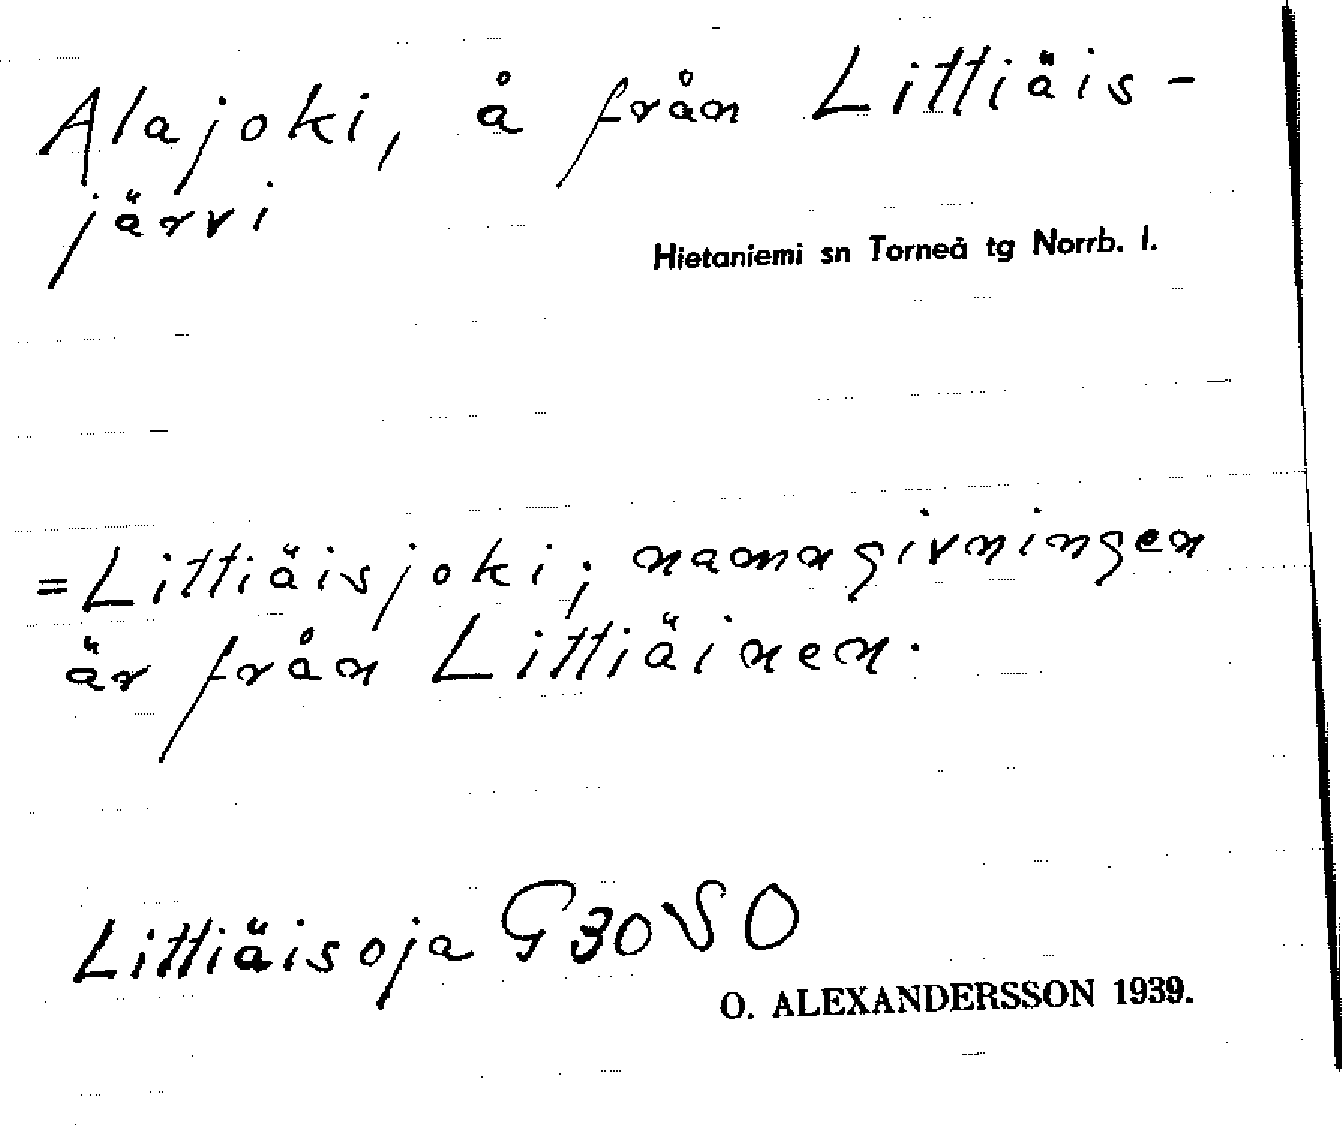 Alajoki, å från Littiäis-
järvi
Hietaniemi sn Torneå tg Norrb. l.
=Littiäisjoki; namngivningen
är från Littiäinen.
Littiäisoja G30SO
O. ALEXANDERSSON 1939.